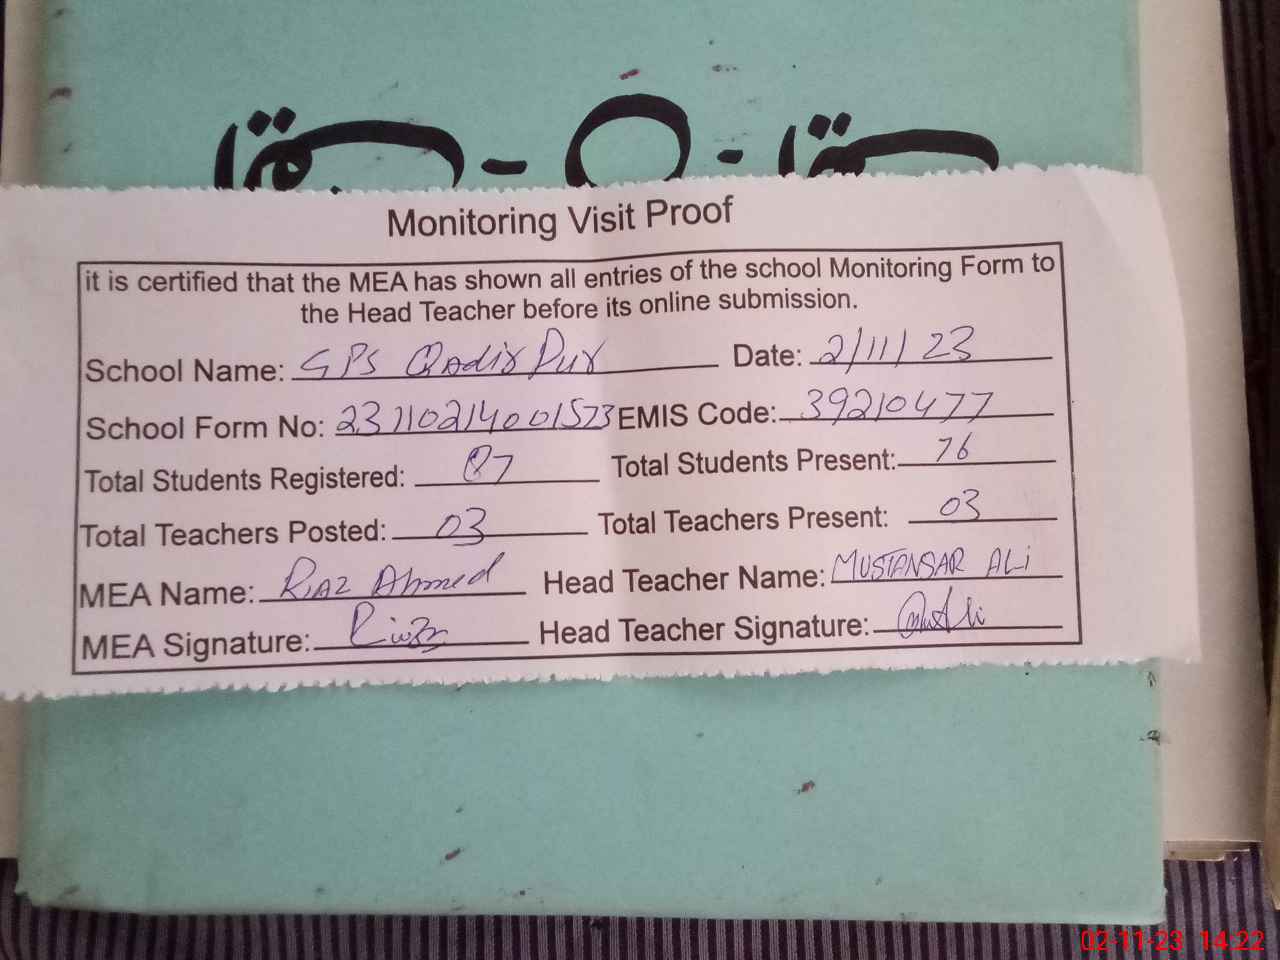 Monitoring Visit Proof
it is certified that the MEA has shown all entries of the school Monitoring Form to
the Head Teacher before its online submission.
School Name: GPS Qadir Pur Date: 2/11/23
School Form No: 231102140001573 EMIS Code: 39210477
Total Students Registered: 87 Total Students Present: 76
Total Teachers Posted: 03 Total Teachers Present: 03
MEA Name: Riaz Ahmed Head Teacher Name: MUSTANSAR ALi
MEA Signature: Riaz Head Teacher Signature:
02-11-23 14:22